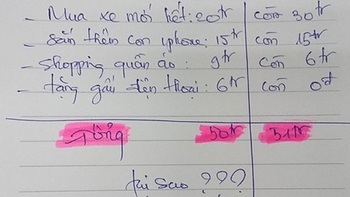 - Mua xe mới hết: 20tr còn 30tr
- Sắm thêm con iphone: 15tr còn 15tr
- Shopping quần áo: 9tr còn 6tr
- tặng gấu điện thoại: 6tr còn 0đ
Tổng 50tr 51tr
tại sao ???